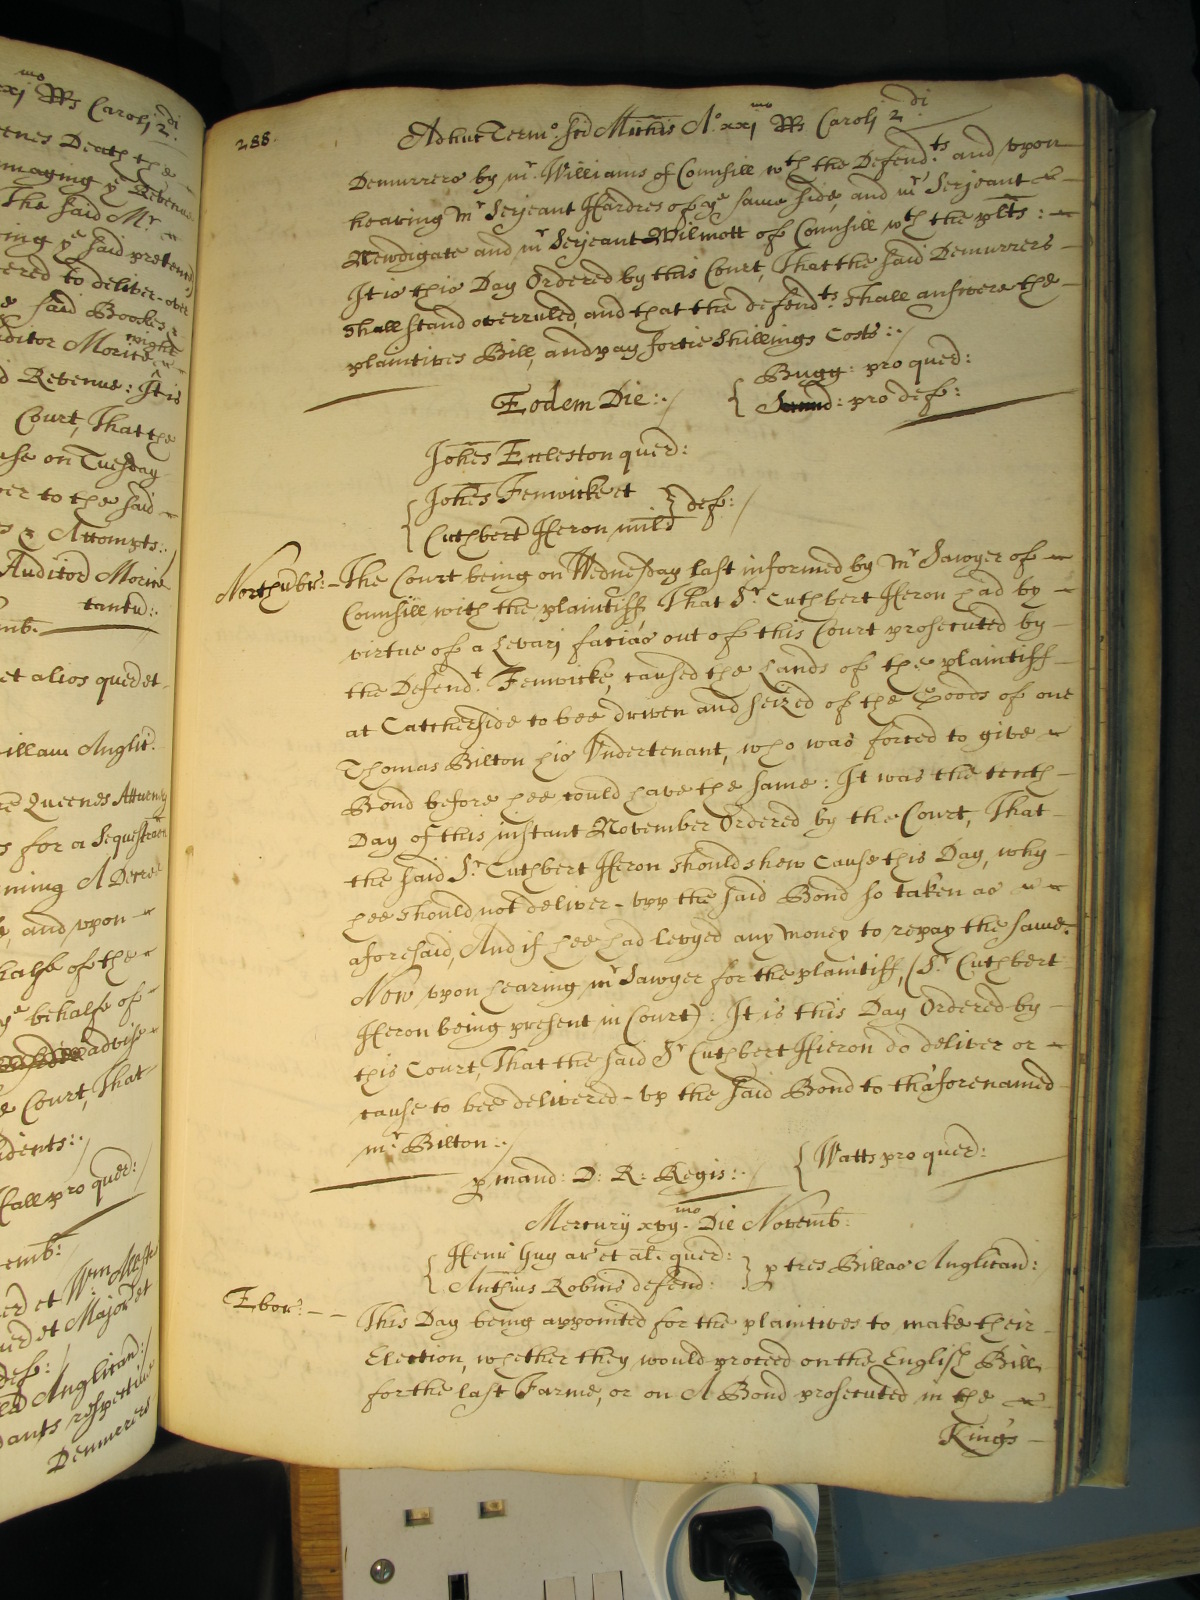 xxj mo Rs Carolj 2 di
eenes Death the
maging ye Revenue
The said Mr.
ring ye said pretend
ered to deliver over
said Bookes
might
ditor Morice
d Revenue: It is
Court, That the
ase on Tuesday
er to the said
Attempts:
Auditor Morice
tantu:
mb:
et alios quer et
illam Anglic:
re Queenes Atturney
s for a Sequestracon
ming A Decree
, and vpon
halfe of the
ye behalfe of
advise
e Court, That
idents:
Call pro quer:
emb:
er et Wm
ur et Major et
def:
Anglican:
dants respective
Demurrers
288.
Adhuc Termo: Sci Michis Ao. xxj mo Rs Carolj 2 di
Demurrers by mr. Williams of Counsill wth the Defendts. and vpon
hearing Mr Serjeant Hardres of ye same side, and mr Serjeant
Newdigate and mr Serjeant Wilmott of Counsill wth the plts:
It is this Day Ordered by this Court, That the said Demurrers
shall stand overruled, and that the defendts. shall answere the
plaintives Bill, and pay fortie shillings Costs:
Bugg: pro quer:
Eodem Die:
pro def:
Johes Eccleston quer:
Johes Fenwicke et
Cuthbert Heron mild
def:
Northubr:
The Court being on Wednesday last informed by Mr Sawyer of
Counsill with the plaintiff, That Sr. Cuthbert Heron had by
virtue of a Levarj facias out of this Court prosecuted by
the Defendt. Fenwicke, caused the Lands of the plaintiff
at Catcherside to bee driven and seized of the Goods of one
Thomas Bilton his Vndertenant, who was forced to give
Bond before hee could have the same: It was the tenth
Day of this instant November Ordered by the Court, That
the said Sr. Cuthbert Heron should shew Cause this Day, why
hee should not deliver vpp the said Bond so taken as
aforesaid, And if hee had levyed any money to repay the same.
Now vpon hearing mr Sawyer for the plaintiff, (Sr. Cuthbert
Heron being present in Court): It is this Day Ordered by
this Court, That the said Sr Cuthbert Hieron do deliver or
cause to bee delivered vp the said Bond to th'aforenamed
mr. Bilton:
p mand: D: R: Regis:
Watts pro quer:
Mercurij xvij mo. Die Novemb:
Henr Gug ar et al. quer:
Anthius Robins defend:
p tres Billas Anglican:
Ebor:
This Day being appointed for the plaintives to make their
Election, whether they would proceed on the English Bill
for the last Farme, or on A Bond prosecuted in the
King's